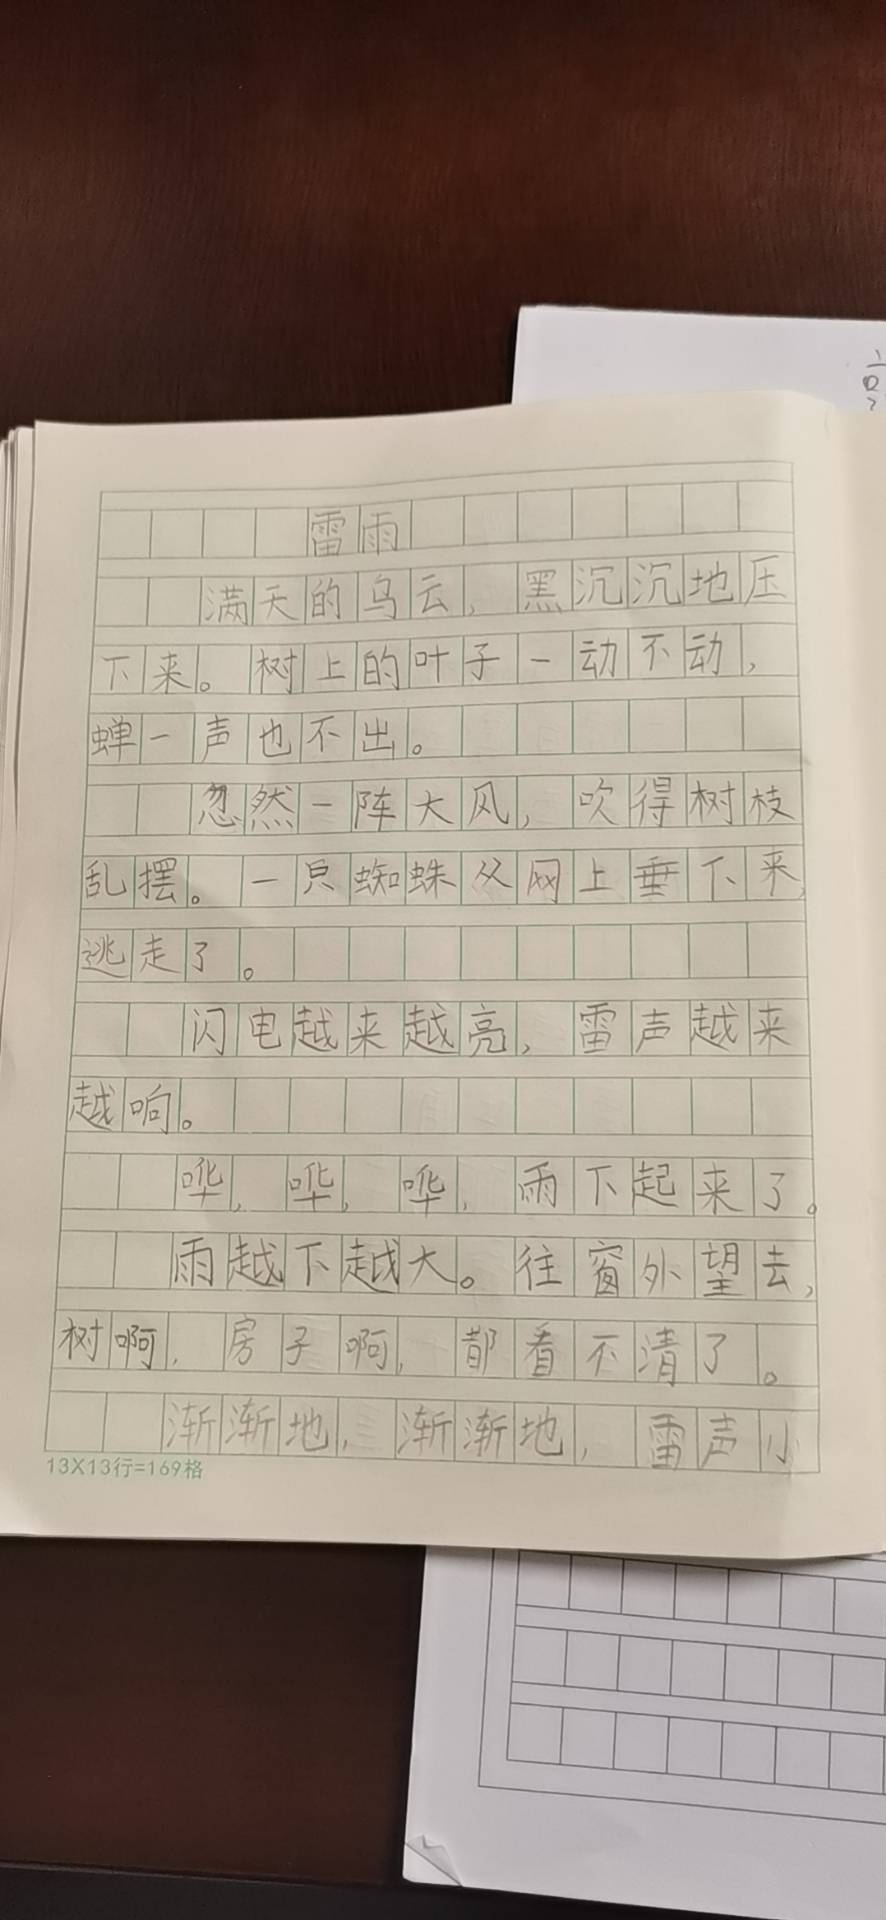 雷雨
满天的乌云，黑沉沉地压
下来。树上的叶子一动不动，
蝉一声也不出。
忽然一阵大风，吹得树枝
乱摆。一只蜘蛛从网上垂下来，
逃走了。
闪电越来越亮，雷声越来
越响。
哗，哗，哗，雨下起来了。
雨越下越大。往窗外望去，
树啊，房子啊，都看不清了。
渐渐地，渐渐地，雷声小
13X13行=169格